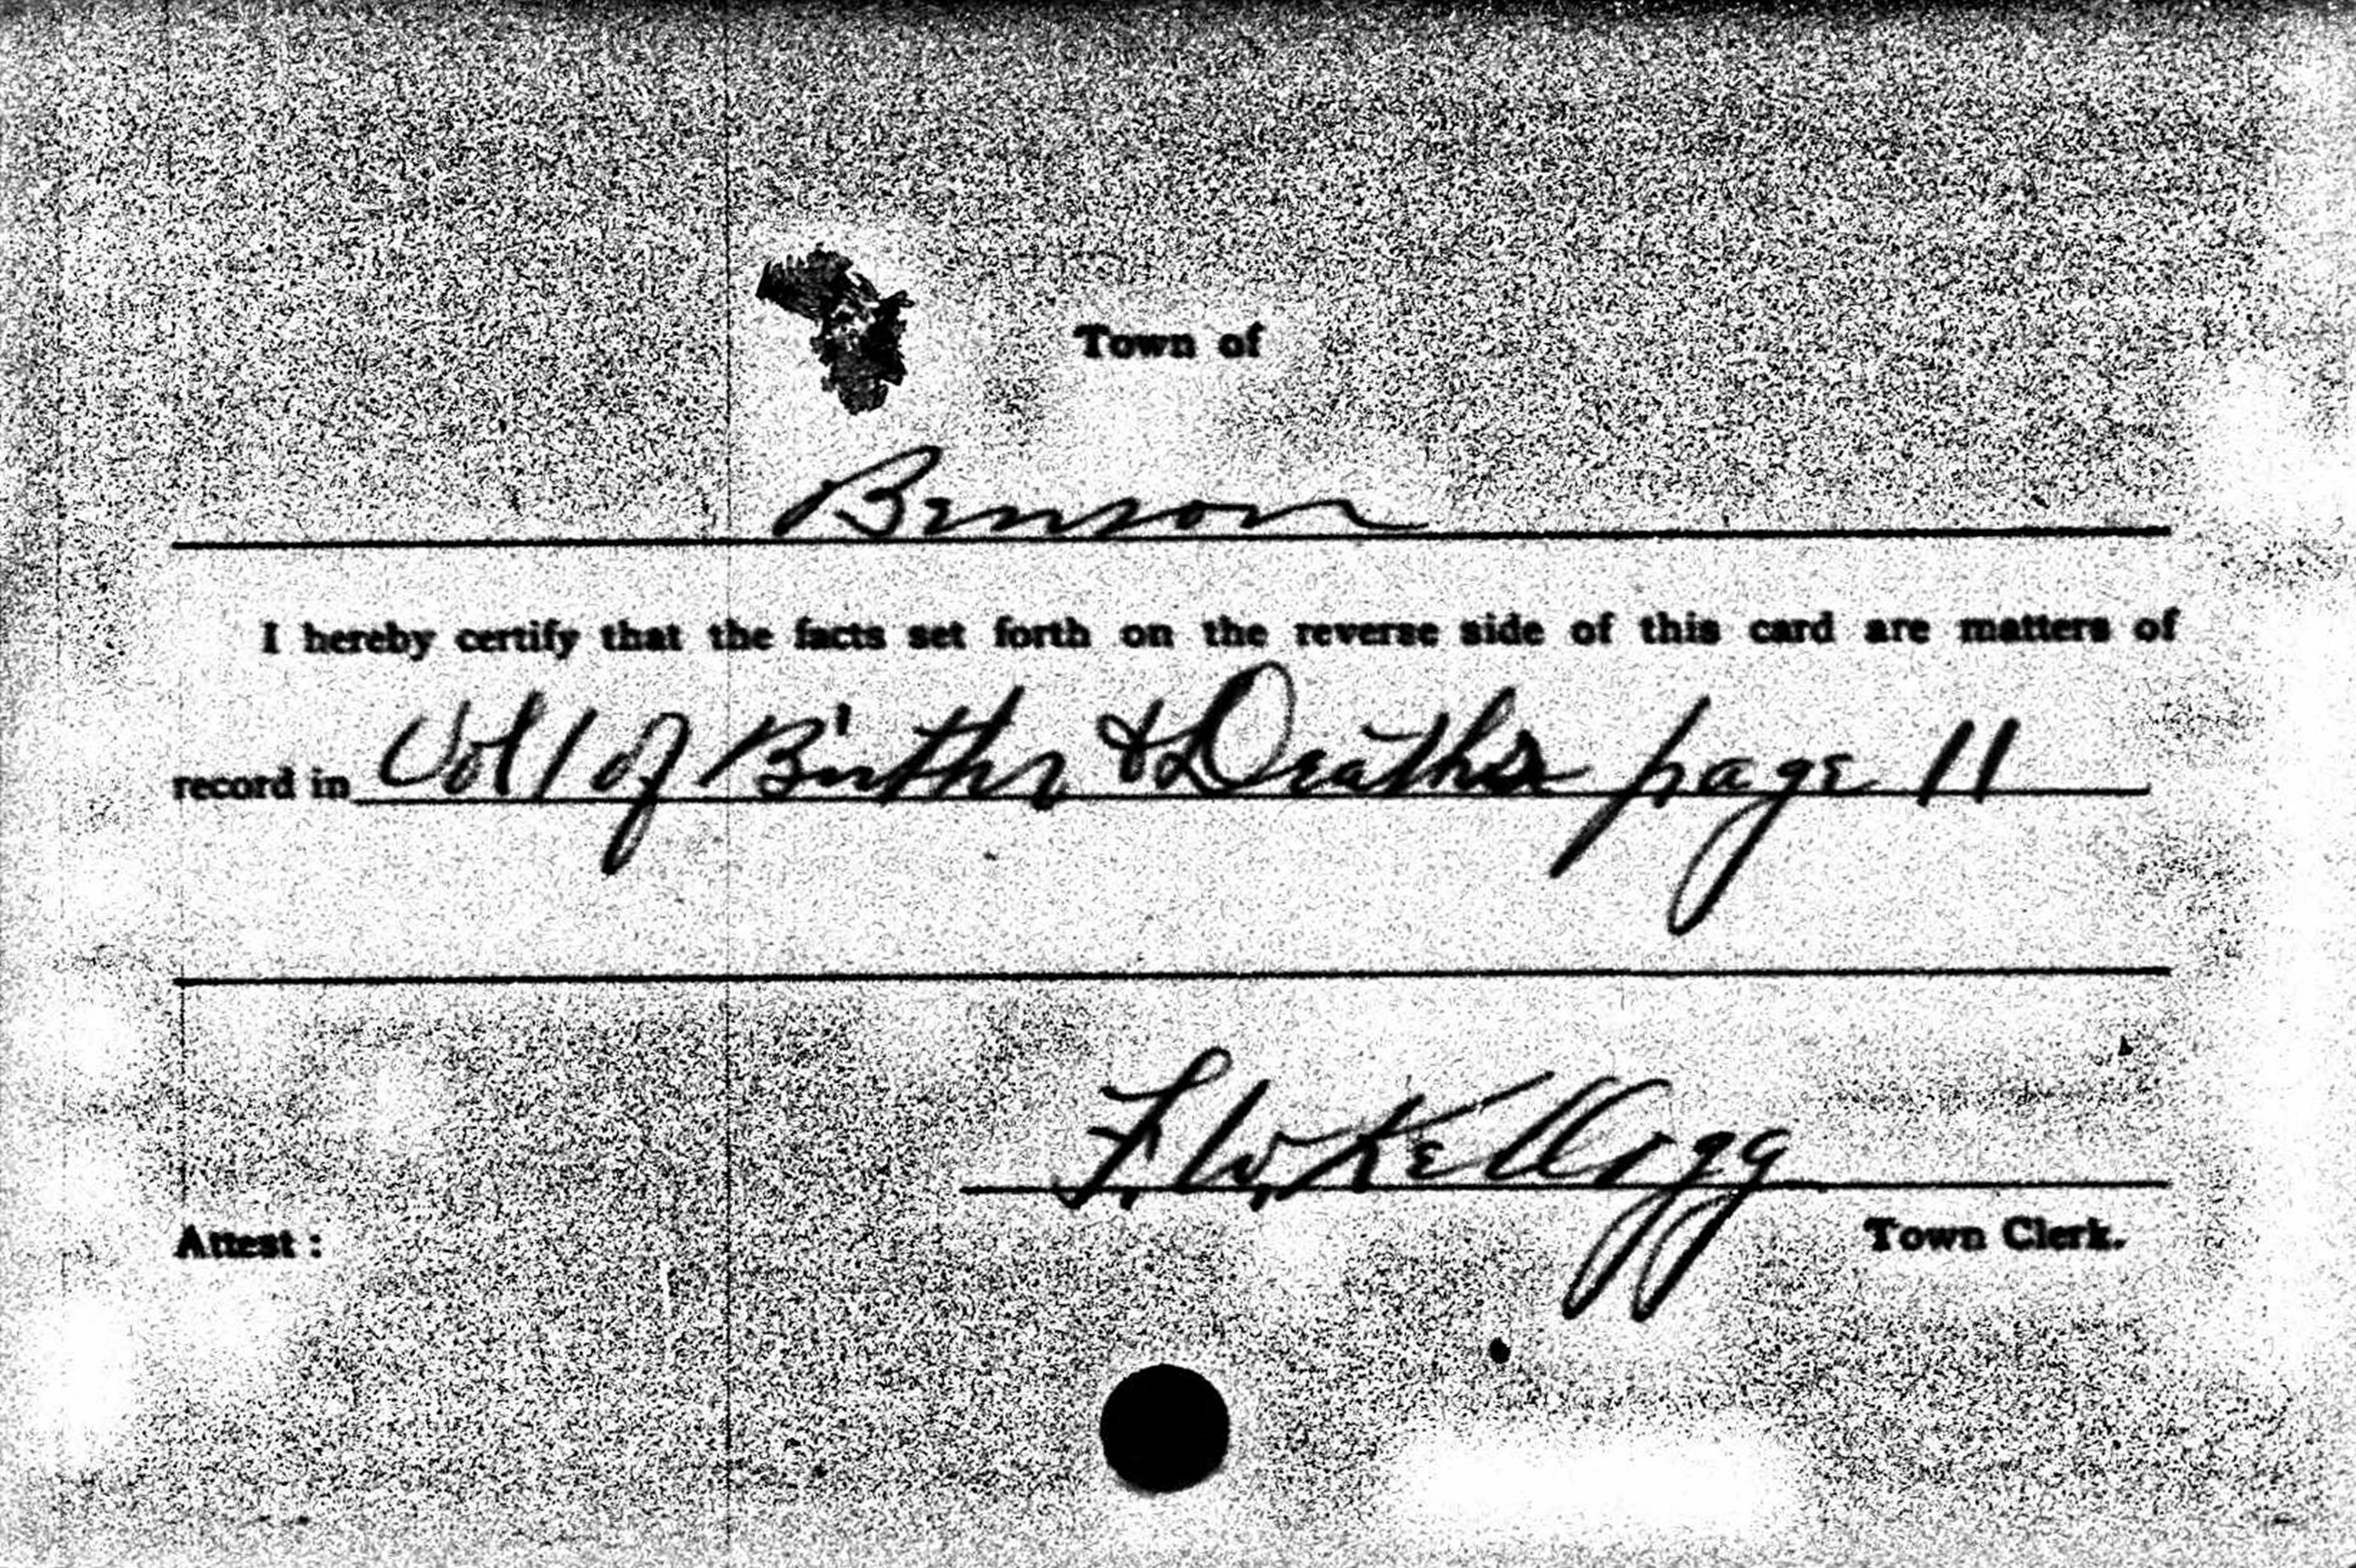 Town of
Benson
I hereby certify that the facts set forth on the reverse side of this card are matters of
record in Vol 1 of Births & Deaths page 11
F. W. Kellogg
Attest : Town Clerk.